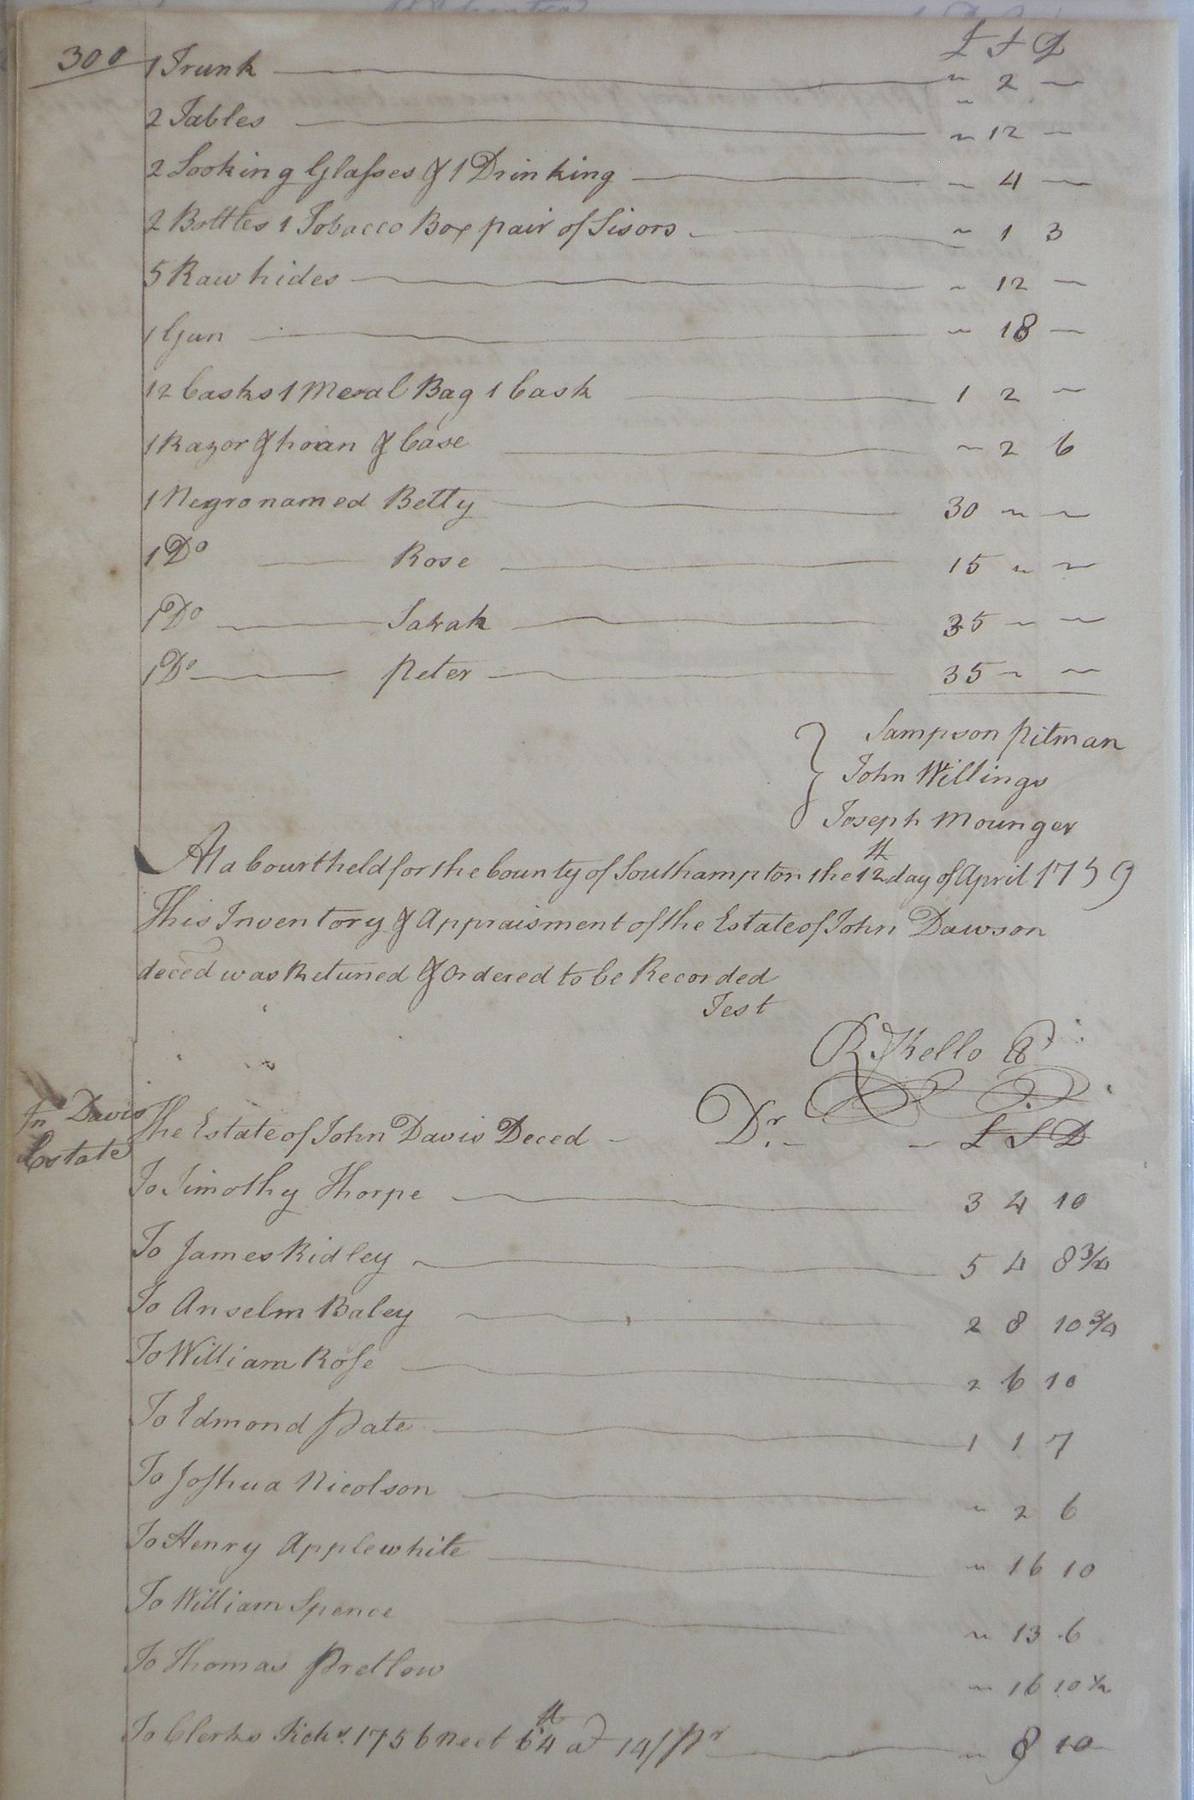 300
£ S D
1 Trunk " 2 —
2 Tables " 12 —
2 Looking Glasses & 1 Drinking " 4 —
2 Bottles 1 Tobacco Box pair of Sisors " 1 3
5 Raw hides " 12 —
1 Gun " 18 —
12 Casks 1 Meal Bag 1 Cask 1 2 —
1 Razor & hoan & Case " 2 6
1 Negro named Betty 30 " "
1 Do Rose 15 " "
1 Do Sarah 35 " "
1 Do Peter 35 " "
Sampson Pitman
John Willings
Joseph Mounger
At a Court held for the County of Southampton the 12th day of April 1759
This Inventory & Appraisment of the Estate of John Dawson
deced was Retuned & Ordered to be Recorded
Test
R Kello
Jn Davis
Estate
The Estate of John Davis Deced Dr. £ S D
To Timothy Thorpe 3 4 10
To James Ridley 5 4 8 3/4
To Anselm Baley 2 8 10 3/4
To William Rose 2 6 10
To Edmond Pate 1 1 7
To Joshua Nicolson " 2 6
To Henry Applewhite " 16 10
To William Spence " 13 6
To Thomas Pretlow " 16 10 1/2
To Clerks 1756 neet 64 a 14/ Pr " 8 10